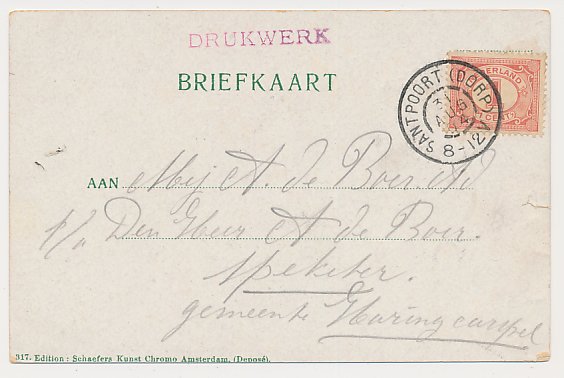 DRUKWERK
BRIEFKAART
NEDERLAND
CENT
SANTPOORT (DORP)
31
AUG
8-12V
AAN Mej A. de Boer Ad
p/a Den Heer A de Boer.
Speketer.
gemeente Haringcarspel
317. Edition: Schaefers Kunst Chromo Amsterdam. (Deposé).